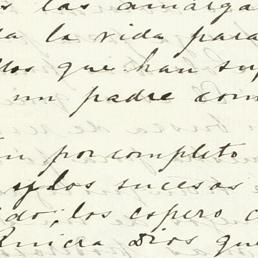 s las amarga
a la vida para
dos que han su
un padre com
n por completo
y los sucesos
ido; los espero c
Quiera Dios que